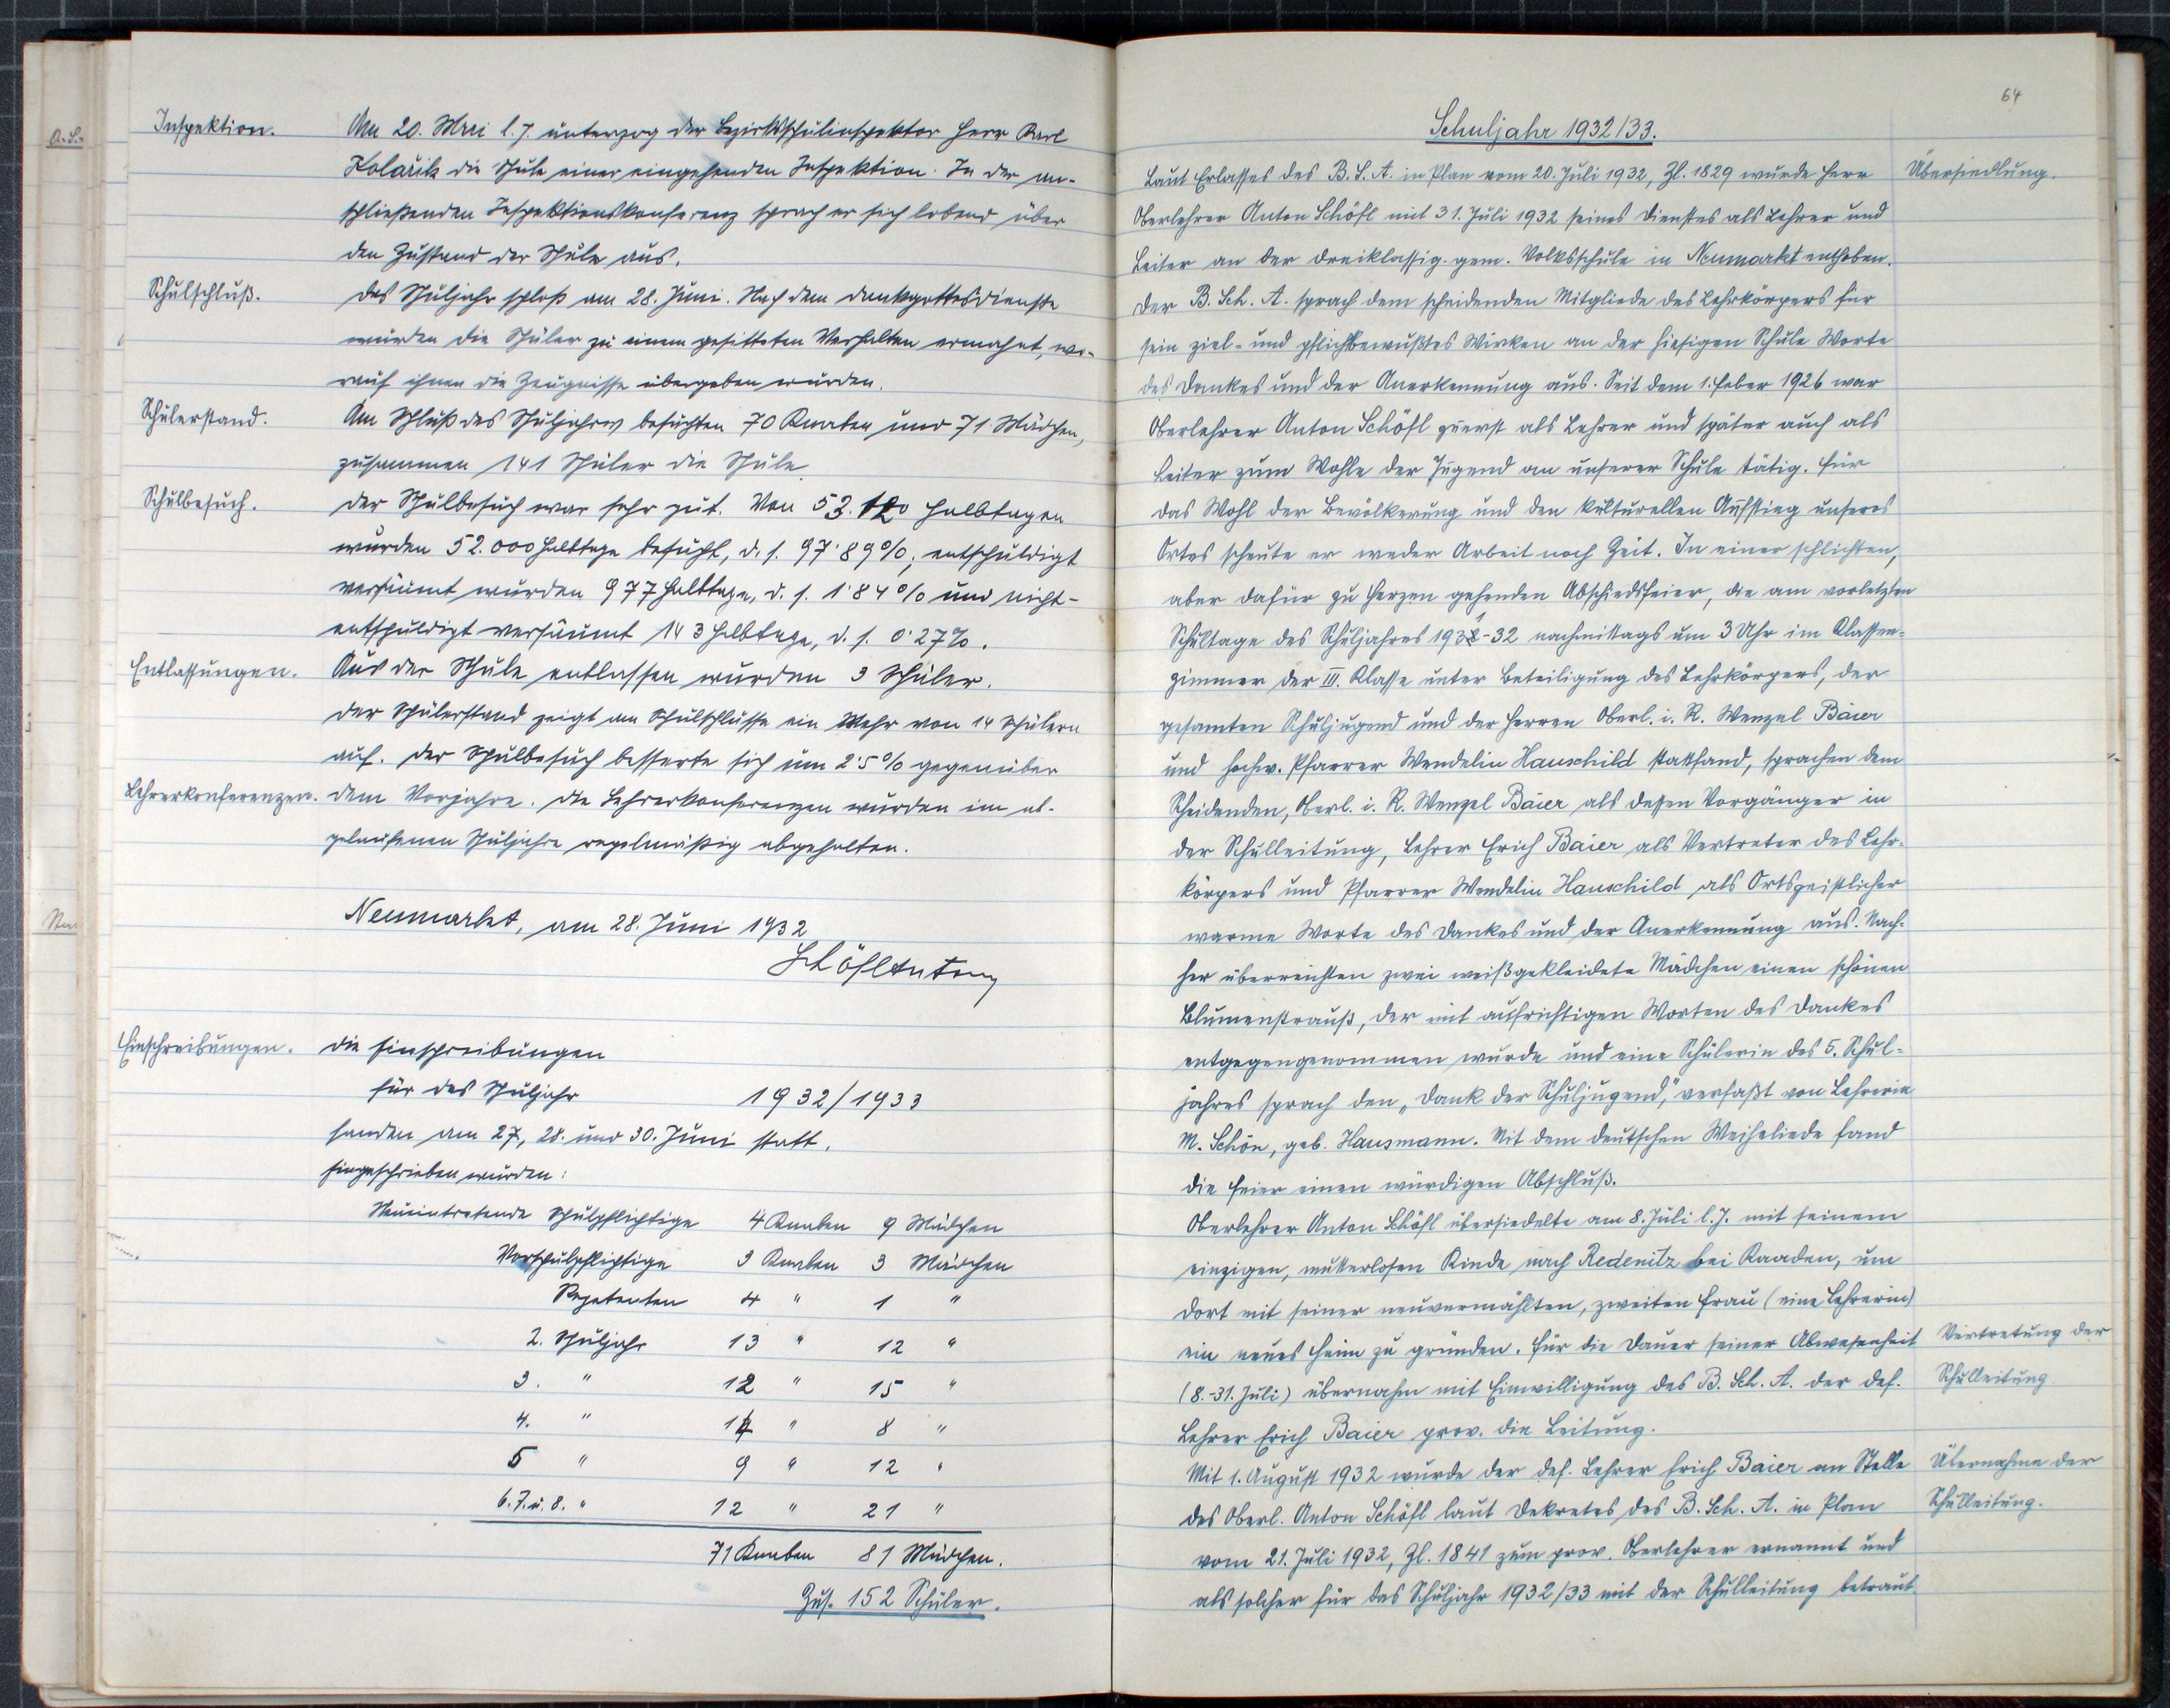 Inspektion.
Am 20. Mai l. J. unterzog der Bezirksschulinspektor Herr Karl
Kolařik die Schule einer eingehenden Inspektion. In der an-
schließenden Inspektionskonferenz sprach er sich lobend über
den Zustand der Schule aus.
Schulschluß.
Das Schuljahr schloß am 28. Juni. Nach dem Dankgottesdienste
wurden die Schüler zu einem gesitteten Verhalten ermahnt, wo-
rauf ihnen die Zeugnisse übergeben wurden.
Schülerstand.
Am Schluß des Schuljahres besuchten 70 Knaben und 71 Mädchen,
zusammen 141 Schüler die Schule.
Schulbesuch.
Der Schulbesuch war sehr gut. Von 53.120 Halbtagen
wurden 52.000 Halbtage besucht, d. s. 97·89%, entschuldigt
versäumt wurden 977 Halbtage, d. s. 1·84% und nicht-
entschuldigt versäumt 143 Halbtage, d. s. 0·27%.
Entlassungen.
Aus der Schule entlassen wurden 3 Schüler.
Der Schülerstand zeigt am Schulschlusse ein Mehr von 14 Schülern
auf. Der Schulbesuch besserte sich um 2·5% gegenüber
Lehrerkonferenzen.
dem Vorjahre. Die Lehrerkonferenzen wurden im ab-
gelaufenen Schuljahre regelmäßig abgehalten.
Neumarkt, am 28. Juni 1932
Schöfl Anton
Einschreibungen.
Die Einschreibungen
für das Schuljahr 1932/1933
fanden am 27., 28. und 30. Juni statt.
Eingeschrieben wurden:
Neueintretende Schulpflichtige 4 Knaben 9 Mädchen
Vorschulpflichtige 3 Knaben 3 Mädchen
Repetenten 4 " 1 "
2. Schuljahr 13 " 12 "
3. " 12 " 15 "
4. " 14 " 8 "
5 " 9 " 12 "
6. 7. u. 8. " 12 " 21 "
71 Knaben 81 Mädchen.
Zus. 152 Schüler.
64
Schuljahr 1932/33.
Übersiedlung.
Laut Erlasses des B. S. A. in Plan vom 20. Juli 1932, Zl. 1829 wurde Herr
Oberlehrer Anton Schöfl mit 31. Juli 1932 seines Dienstes als Lehrer und
Leiter an der dreiklassig. gem. Volksschule in Neumarkt enthoben.
Der B. Sch. A. sprach dem scheidenden Mitgliede des Lehrkörpers für
sein ziel- und pflichtbewußtes Wirken an der hiesigen Schule Worte
des Dankes und der Anerkennung aus. Seit dem 1. Feber 1926 war
Oberlehrer Anton Schöfl zuerst als Lehrer und später auch als
Leiter zum Wohle der Jugend an unserer Schule tätig. Für
das Wohl der Bevölkerung und den kulturellen Aufstieg unseres
Ortes scheute er weder Arbeit noch Zeit. In einer schlichten,
aber dafür zu Herzen gehenden Abschiedsfeier, die am vorletzten
Schultage des Schuljahres 1931-32 nachmittags um 3 Uhr im Klassen-
zimmer der III. Klasse unter Beteiligung des Lehrkörpers, der
gesamten Schuljugend und der Herren Oberl. i. R. Wenzel Baier
und hochw. Pfarrer Wendelin Hauschild stattfand, sprachen dem
Scheidenden, Oberl. i. R. Wenzel Baier als dessen Vorgänger in
der Schulleitung, Lehrer Erich Baier als Vertreter des Lehr-
körpers und Pfarrer Wendelin Hauschild als Ortsgeistlicher
warme Worte des Dankes und der Anerkennung aus. Nach-
her überreichten zwei weißgekleidete Mädchen einen schönen
Blumenstrauß, der mit aufrichtigen Worten des Dankes
entgegengenommen wurde und eine Schülerin des 5. Schul-
jahres sprach den „Dank der Schuljugend," verfaßt von Lehrerin
M. Schön, geb. Hausmann. Mit dem deutschen Weiheliede fand
die Feier einen würdigen Abschluß.
Oberlehrer Anton Schöfl übersiedelte am 8. Juli l. J. mit seinem
einzigen, mutterlosen Kinde nach Redenitz bei Kaaden, um
dort mit seiner neuvermählten, zweiten Frau (eine Lehrerin)
ein neues Heim zu gründen. Für die Dauer seiner Abwesenheit
Vertretung der
Schulleitung.
(8.-31. Juli) übernahm mit Einwilligung des B. Sch. A. der def.
Lehrer Erich Baier prov. die Leitung.
Mit 1. August 1932 wurde der def. Lehrer Erich Baier an Stelle
Übernahme der
Schulleitung.
des Oberl. Anton Schöfl laut Dekretes des B. Sch. A. in Plan
vom 21. Juli 1932, Zl. 1841 zum prov. Oberlehrer ernannt und
als solcher für das Schuljahr 1932/33 mit der Schulleitung betraut